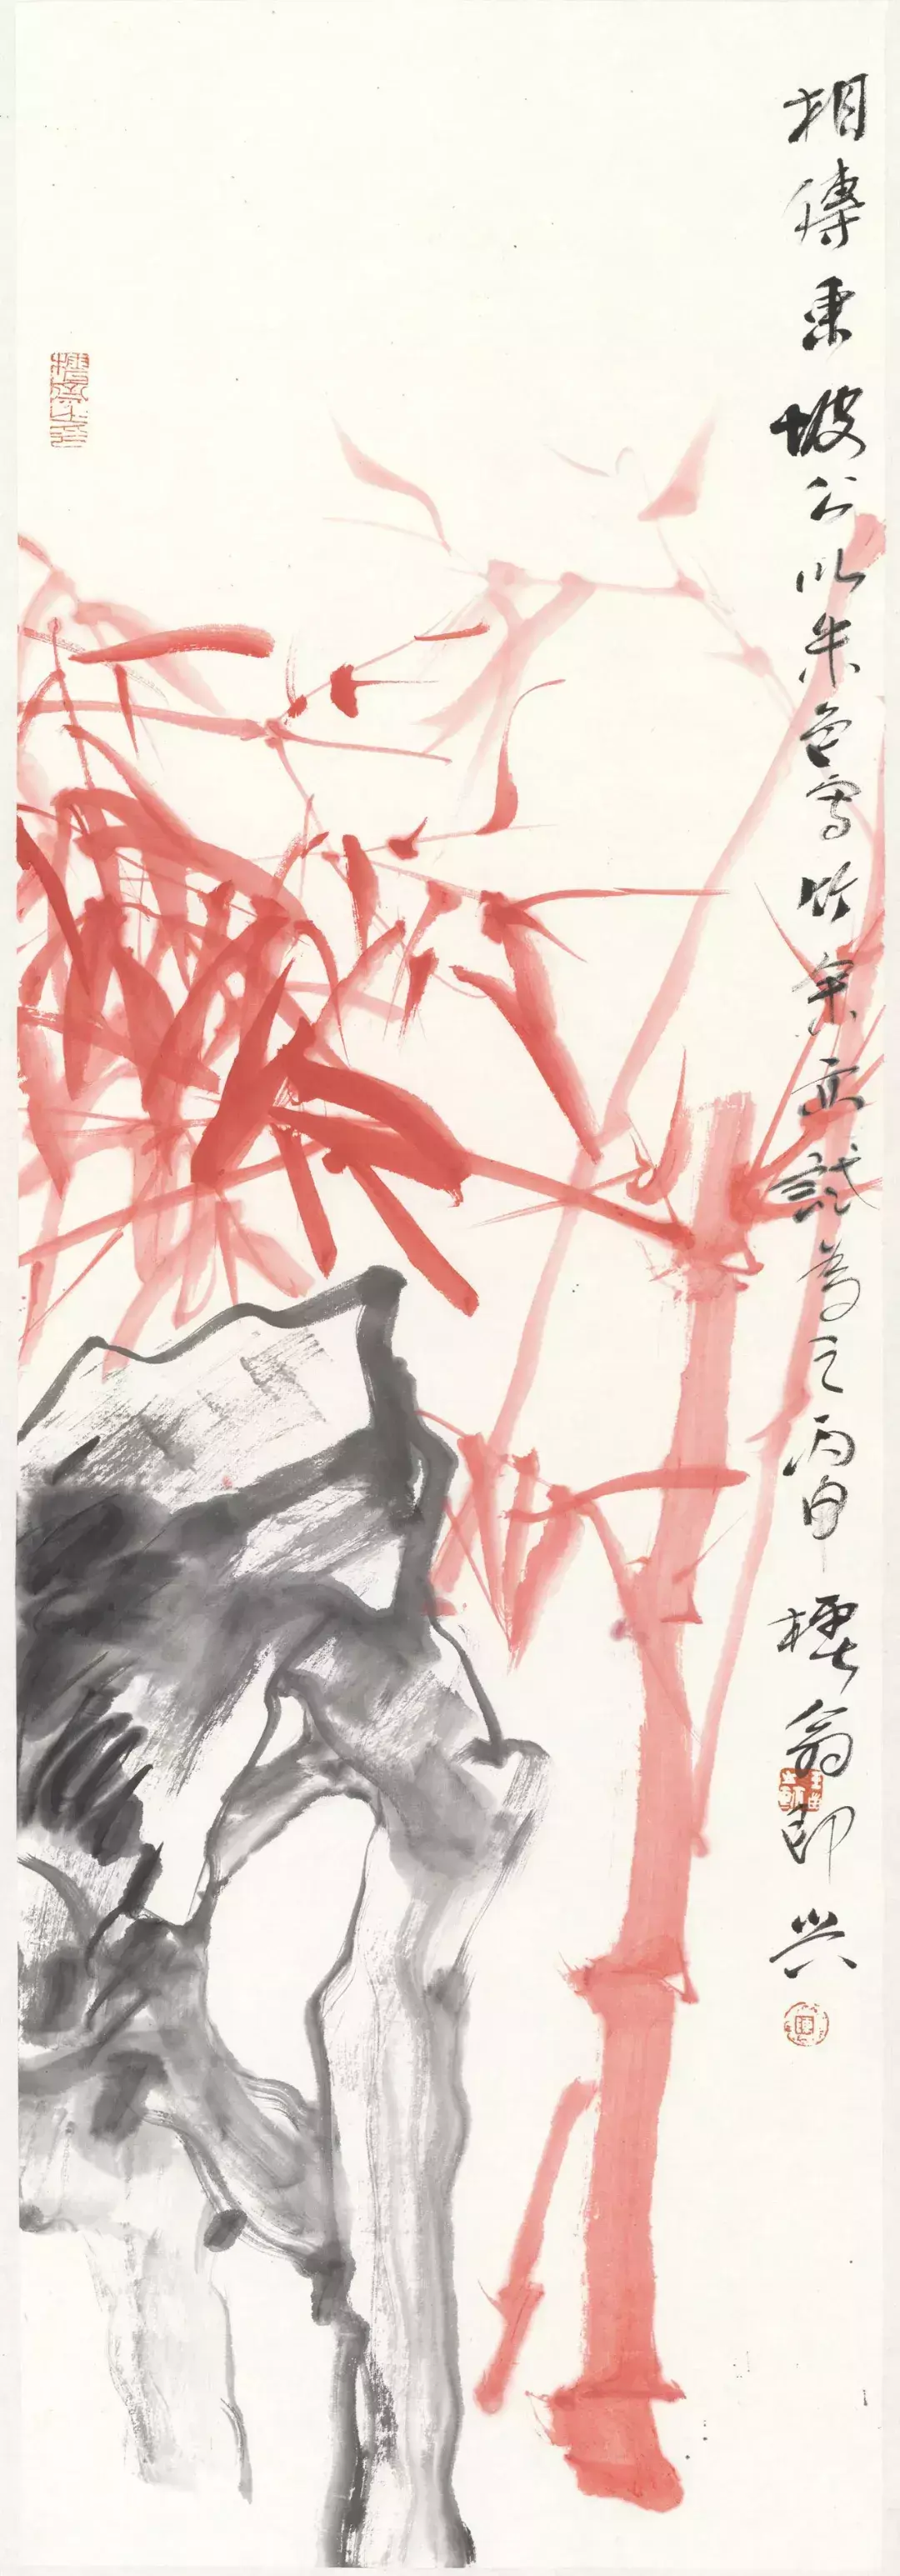 相傳東坡公以朱色寫竹余亦試為之丙申檉翁即兴